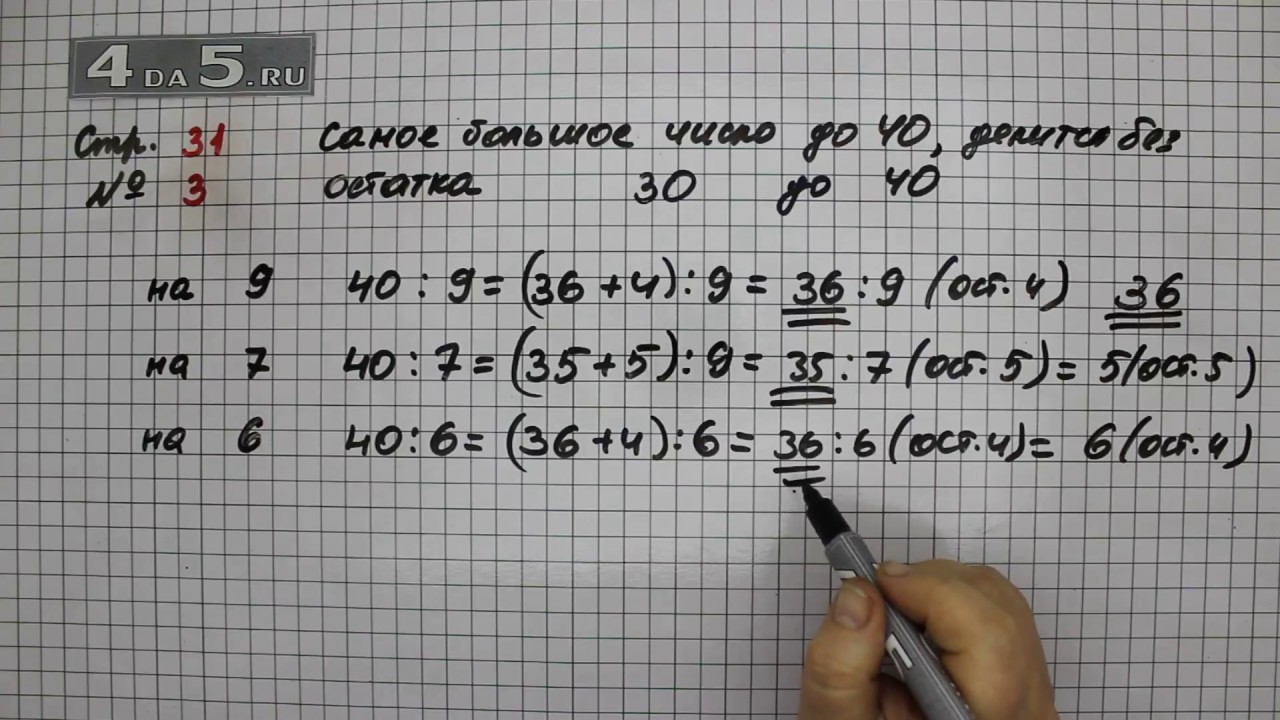 4DA5.RU
Стр. 31 Самое большое число до 40, делится без
№ 3 остатка 30 до 40
на 9 40 : 9 = (36 + 4) : 9 = 36 : 9 (ост. 4) 36
на 7 40 : 7 = (35 + 5) : 9 = 35 : 7 (ост. 5) = 5 (ост. 5)
на 6 40 : 6 = (36 + 4) : 6 = 36 : 6 (ост. 4) = 6 (ост. 4)